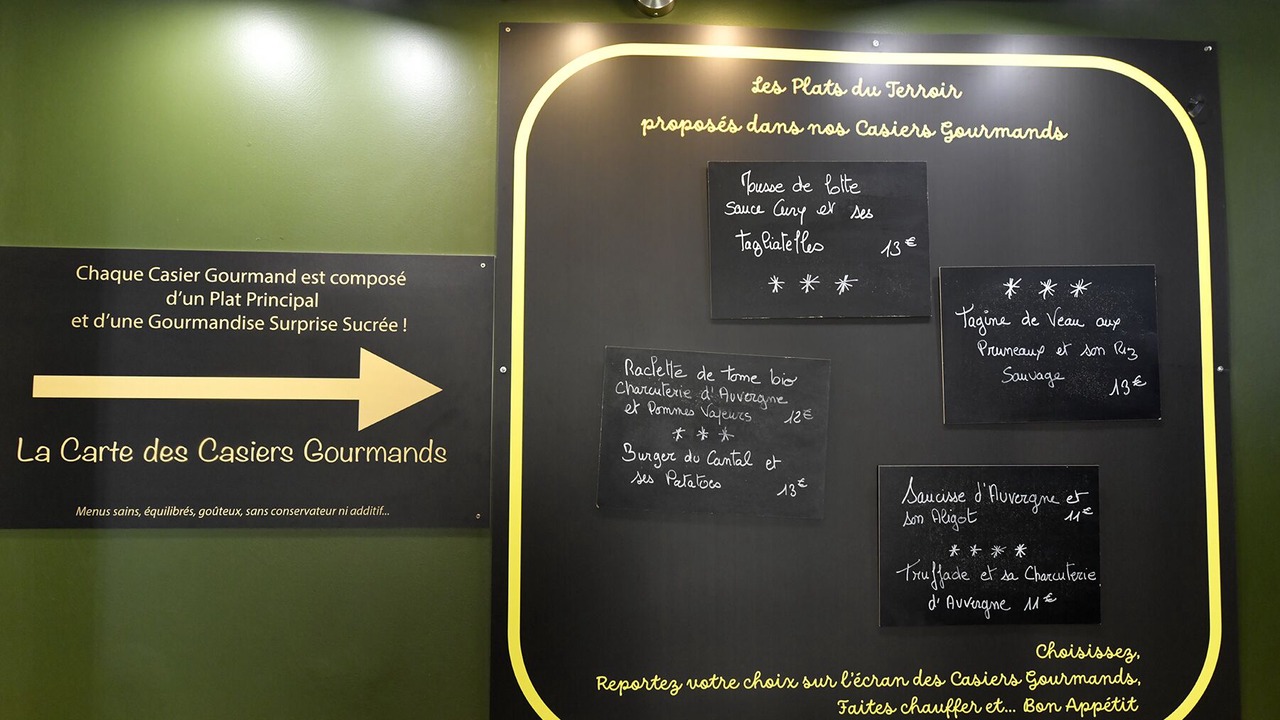 Chaque Casier Gourmand est composé
d'un Plat Principal
et d'une Gourmandise Surprise Sucrée !
La Carte des Casiers Gourmands
Menus sains, équilibrés, goûteux, sans conservateur ni additif...
Les Plats du Terroir
proposés dans nos Casiers Gourmands
Mousse de lotte
Sauce Curry et ses
Tagliatelles 13€
Raclette de tome bio
Charcuterie d'Auvergne
et Pommes Vapeurs 12€
Burger du Cantal et
ses Patatoes 13€
Tagine de Veau aux
Pruneaux et son Riz
Sauvage 13€
Saucisse d'Auvergne et
son Aligot 11€
Truffade et sa Charcuterie
d'Auvergne 11€
Choisissez,
Reportez votre choix sur l'écran des Casiers Gourmands,
Faites chauffer et... Bon Appétit